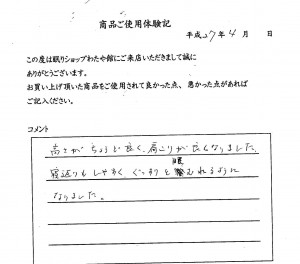 商品ご使用体験記
平成27年4月　日
この度は眠りショップわたや館にご来店いただきまして誠に
ありがとうございます。
お買い上げ頂いた商品をご使用されて良かった点、悪かった点があれば
ご記入ください。
コメント
高さがちょうど良く、肩こりが良くなりました。
寝返りもしやすく ぐっすりと眠れるように
なりました。